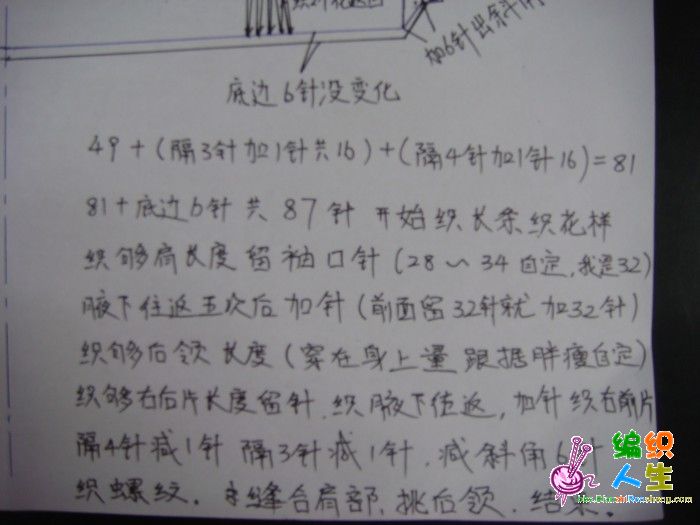 加6针出斜角
底边6针没变化
49+(隔3针加1针共16)+(隔4针加1针16)=81
81+底边6针共 87针 开始织长条织花样
织够肩长度留袖口针(28~34自定,我是32)
腋下往返五次后加针(前面留32针就加32针)
织够后领长度(穿在身上量 跟据胖瘦自定)
织够右后片长度留针.织腋下往返,加针织右前片
隔4针减1针 隔3针减1针.减斜角6
织螺纹. 缝合肩部 挑后领.结束.
编织
人生